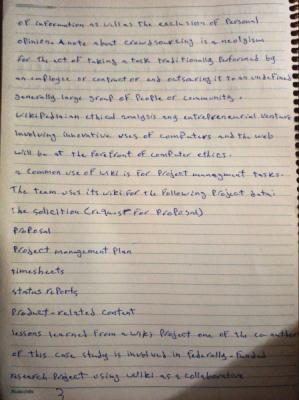 of information as well as the exclusion of Personal
opinion. A note about crowdsourcing is a neologism
for the act of taking a task traditionally Performed by
an employee or contractor and outsourcing it to an undefined
generally large group of People or community.
wikipedian ethical analysis and entrepreneurial venture
Involving innovative uses of computers and the web
will be at the forefront of computer ethics.
a common use of wiki is for Project managment tasks.
The team uses its wiki for the following Project data:
the solicition (request for Proposal)
Proposal
Project management Plan
timesheets
status reports
Product-related content
lessons learned from a wiki Project one of the co-author
of this case study is involved in federally-funded
research Project using wiki as a collaborative
3